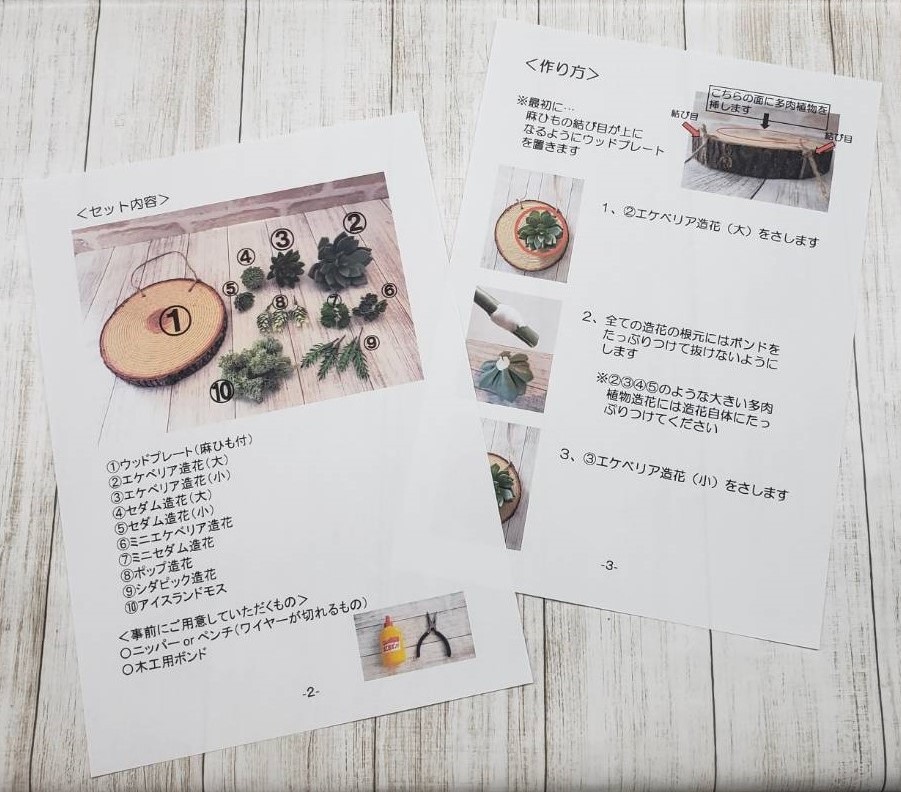 ＜セット内容＞
①
②
③
④
⑤
⑥
⑦
⑧
⑨
⑩
①ウッドプレート（麻ひも付）
②エケベリア造花（大）
③エケベリア造花（小）
④セダム造花（大）
⑤セダム造花（小）
⑥ミニエケベリア造花
⑦ミニセダム造花
⑧ポップ造花
⑨シダピック造花
⑩アイスランドモス
＜事前にご用意していただくもの＞
○ニッパー or ペンチ（ワイヤーが切れるもの）
○木工用ボンド
-2-
＜作り方＞
※最初に…
麻ひもの結び目が上に
なるようにウッドプレート
を置きます
こちらの面に多肉植物を
挿します
結び目
結び目
1、②エケベリア造花（大）をさします
2、全ての造花の根元にはボンドを
たっぷりつけて抜けないように
します
※②③④⑤のような大きい多肉
植物造花には造花自体にたっ
ぷりつけてください
3、③エケベリア造花（小）をさします
-3-